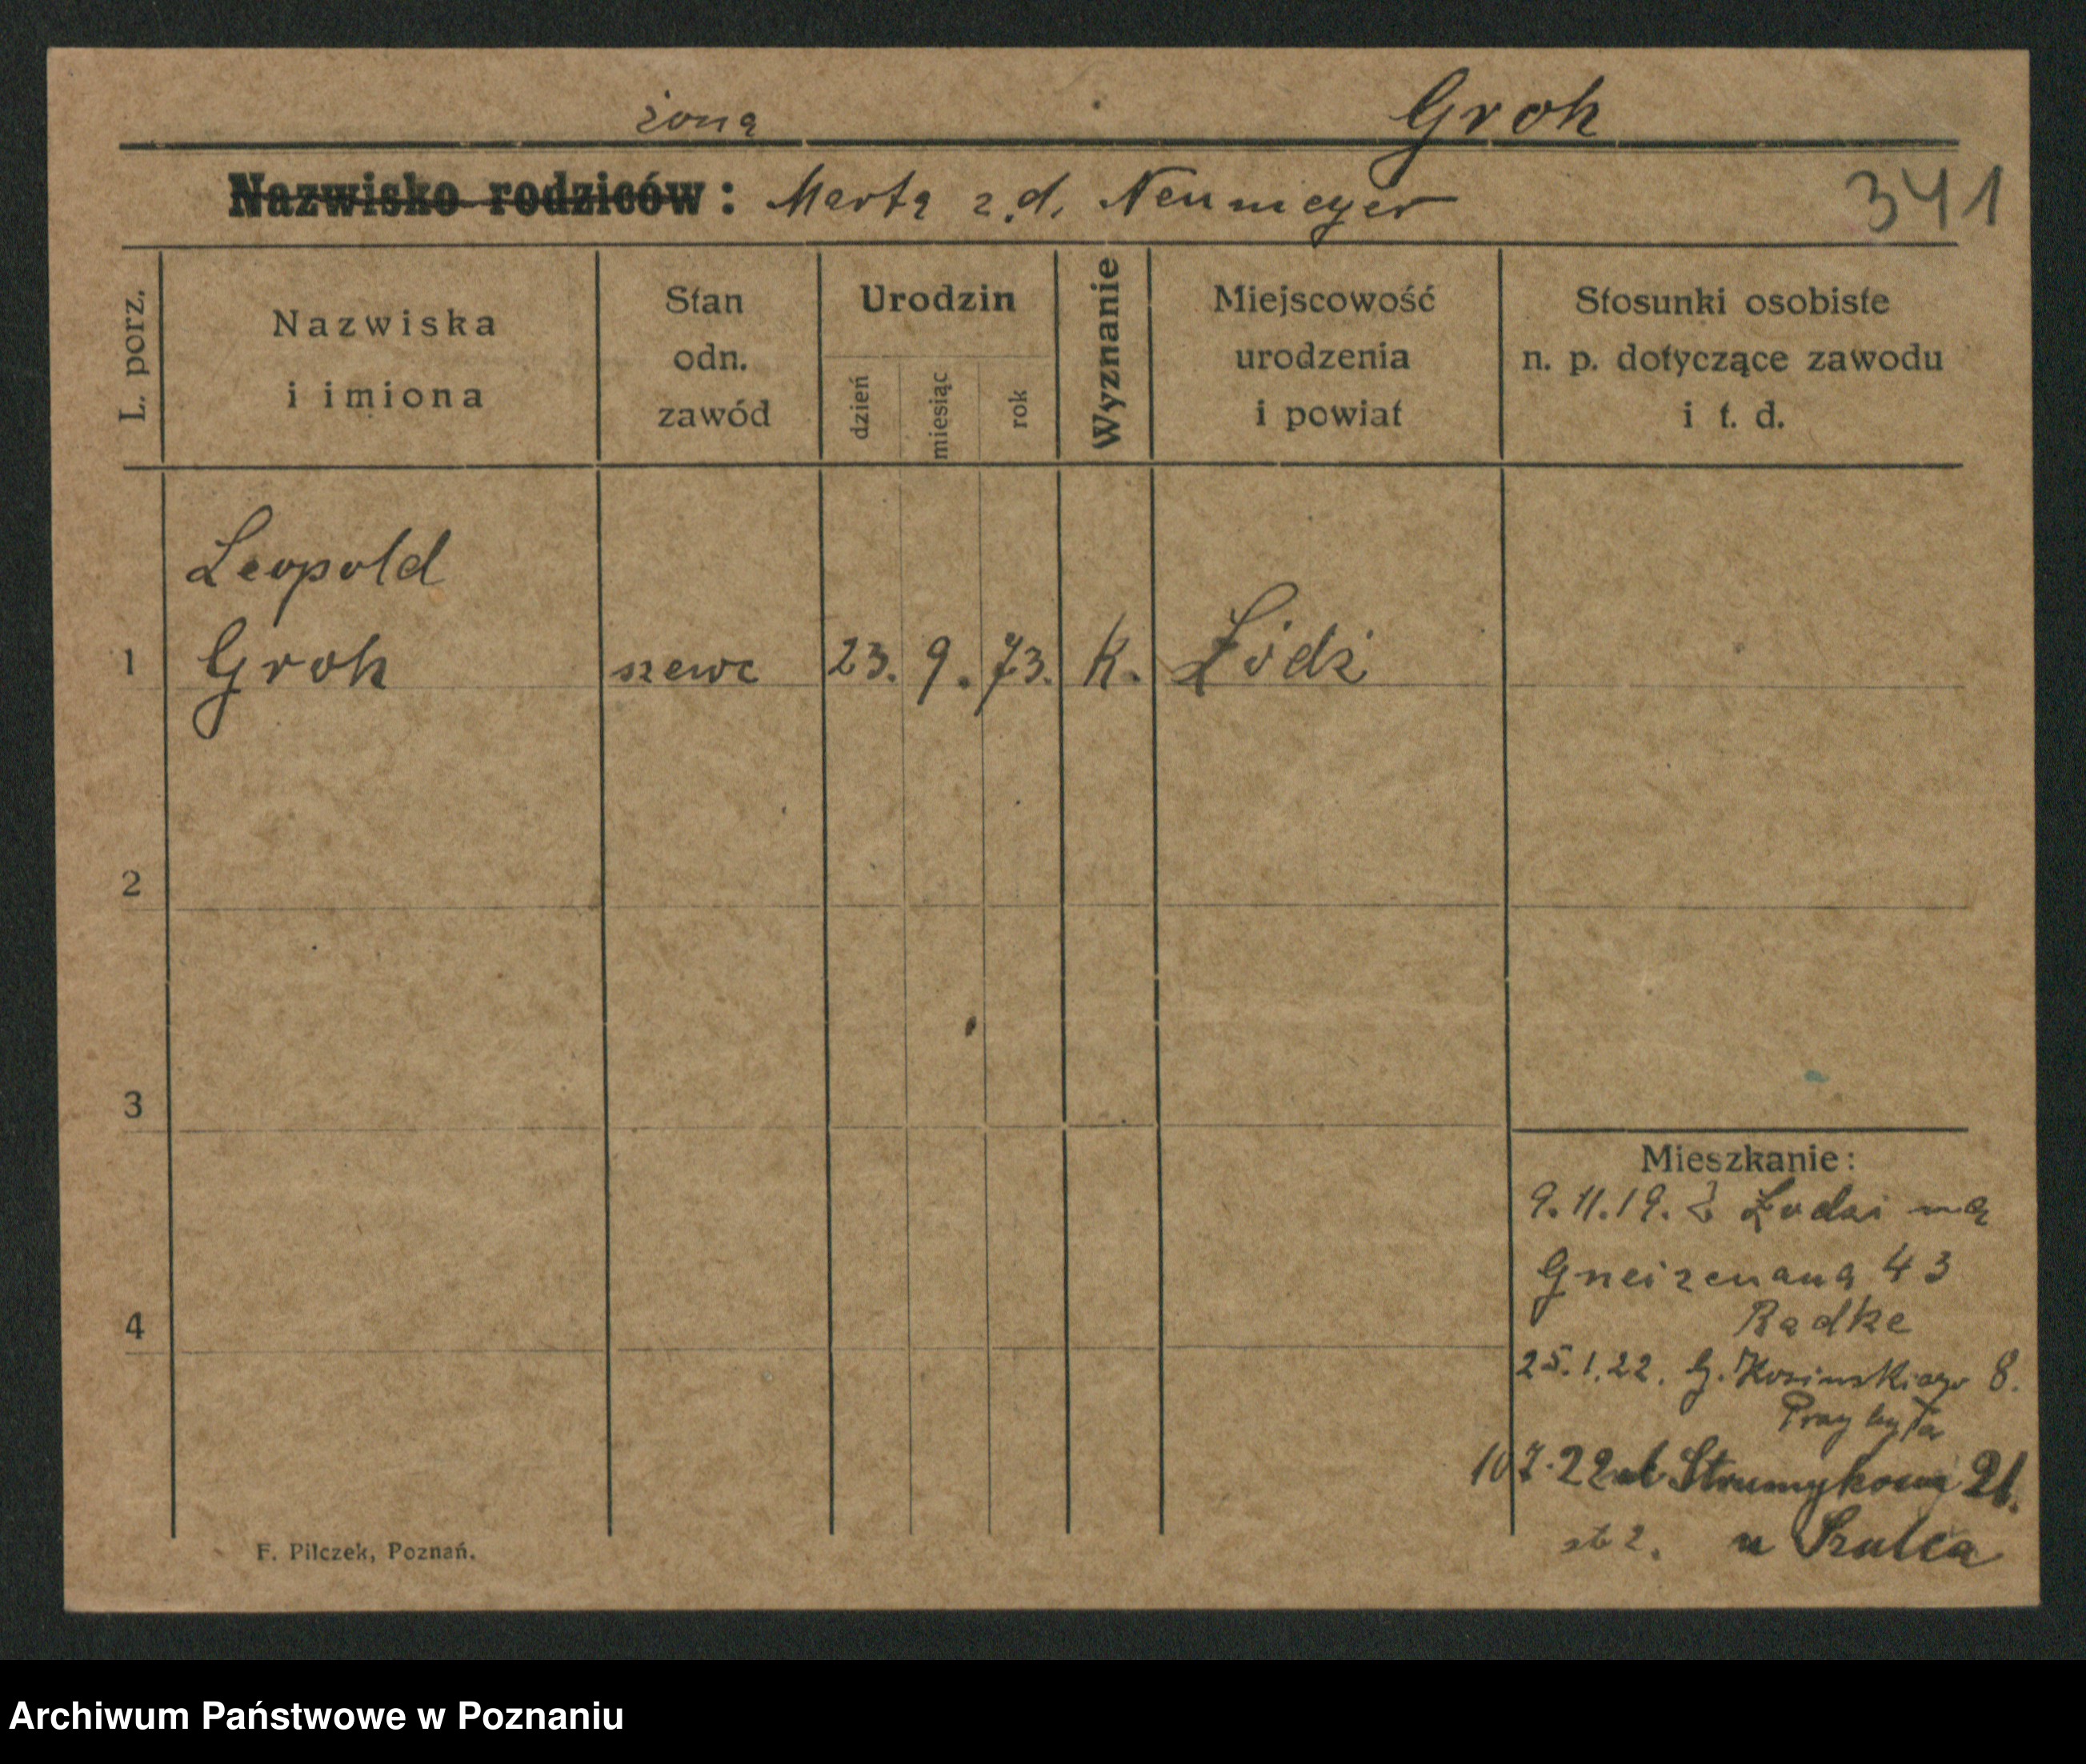 żona Groh
Nazwisko rodziców: Marta z.d. Neumeyer 341
L. porz.
Nazwiska
i imiona
Stan
odn.
zawód
Urodzin
dzień
miesiąc
rok
Wyznanie
Miejscowość
urodzenia
i powiat
Stosunki osobiste
n. p. dotyczące zawodu
i t. d.
Leopold
1 Groh szewc 23. 9. 73. K. Łódź
2
3
4
Mieszkanie:
9.11.19. z Łodzi na
Gneizenaua 43
Radke
25.1.22. G. Kosinskiego 8.
Przybyła
10 7.22 ul Strumykowa 21.
st 2. u Szulca
F. Pilczek, Poznań.
Archiwum Państwowe w Poznaniu